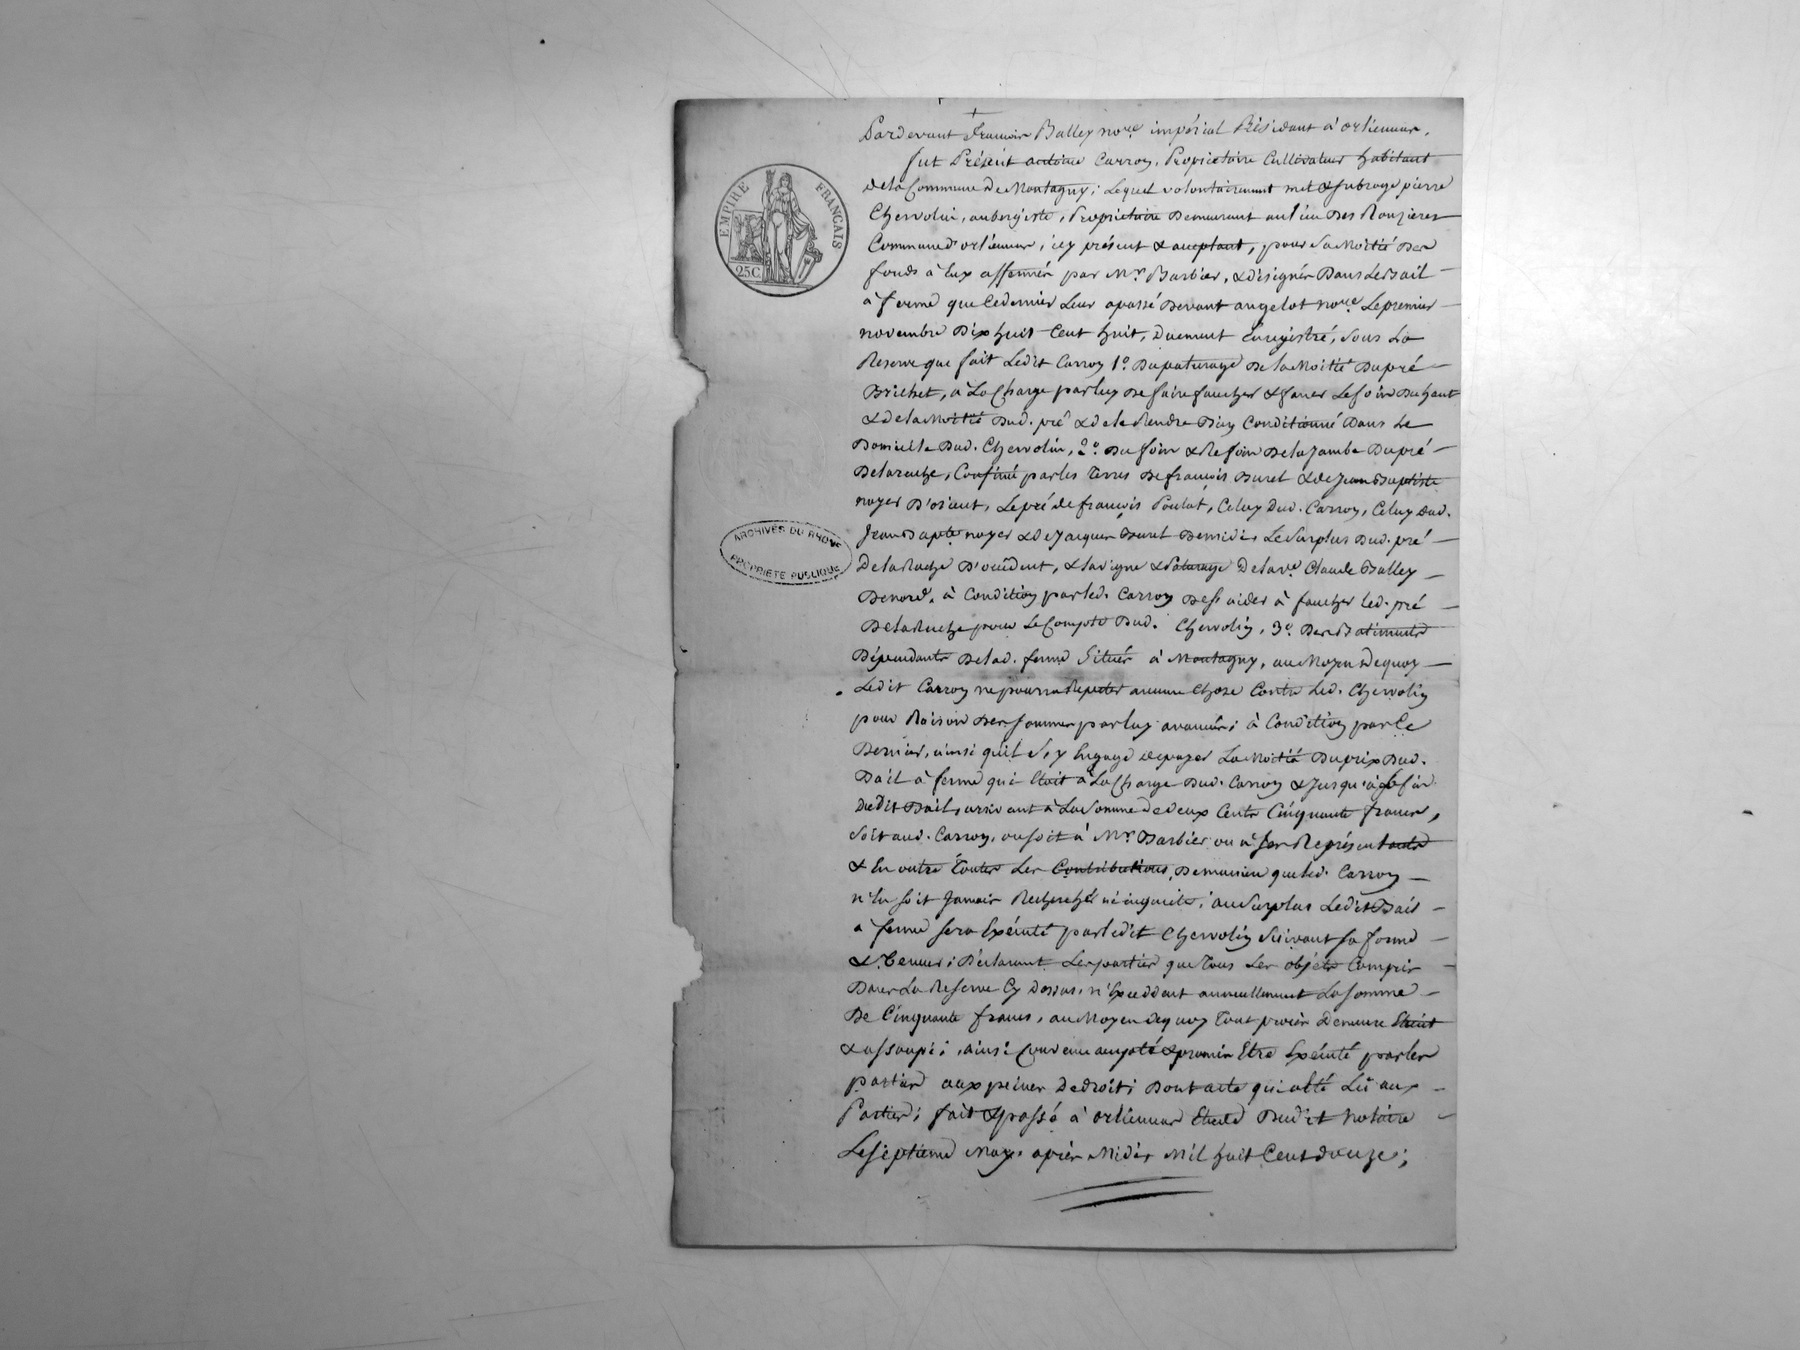 EMPIRE FRANÇAIS
25C.
ARCHIVES DU RHONE
PROPRIETE PUBLIQUE
Pardevant françois Balley nore. impérial Résidant à orlienas,
fut Présent antoine Carroy, Propriétaire Cultivateur habitant
de la Commune De Montagny; Lequel volontairement met & subroge pierre
Chervolin, aubergiste, Propriétaire Demeurant au lieu Des Rouzieres
Commune d'orlienas, icy présent & acceptant, pour La Moitié Des
fonds à Eux affermés par Mr. Barbier, & désignés Dans Le Bail
à ferme que Ce dernier Leur a passé Devant angelot nore. Le premier
novembre Dix huit Cent huit, Duement Enregistré, sous La
Reserve que fait Ledit Carroy 1º. Du paturage De la Moitié Du pré
Brichet, à La Charge par luy De faire faucher & faner Le foin Du haut
& de la Moitié Dud. pré & de le Rendre Bien Conditionné Dans Le
Domicile Dud. Chervolin, 2º. Du foin & Refoin De la Jambe Du pré
De la ruche, Confiné par les Terres De françois Buret & de Jean Baptiste
noyer D'orient, Le pré de françois Poulat, Celuy Dud. Carroy, Celuy Dud.
Jean Bapte noyer & De Jacques Buret De midi, Le Surplus Dud. pré
De la Ruche D'occident, & la vigne & Paturage De la ve. Claude Balley
De nord, à Condition par led. Carroy De fs aider à faucher led. pré
De la Ruche pour Le Compte Dud. Chervolin, 3º. Des Batiments
Dépendants De lad. ferme Situés à Montagny, au Moyen De quoy
Ledit Carroy ne pourra Repeter aucune Chose Contre Led. Chervolin
pour Raison Des sommes par luy avancées; à Condition par Ce
Dernier, ainsi qu'il s'y Engage de payer La Moitié Du prix Dud.
Bail à ferme qui Etoit à La Charge Dud. Carroy & Jusqu'à la fin
Dudit Bail, arrivant à La Somme De deux Cents Cinquante francs,
soit aud. Carroy, ou soit à Mr. Barbier ou à ses Représentants
& En outre Toutes Les Contributions, De maniere que led. Carroy
n'En soit Jamais Recherché ni inquieté, au Surplus Ledit Bail
à ferme sera Exécuté par ledit Chervolin Suivant sa forme
& Teneur; Déclarant Les parties que Tous Les objets Compris
Dans La Reserve Cy Dessus, n'Excedent annuellement La somme
De Cinquante francs, au Moyen De quoy Tout procès Demeure Eteint
& assoupi; ainsi Convenu accepté & promis Etre Exécuté par les
parties aux peines De droit; Dont acte qui a été Lû aux
Parties; fait & passé à orlienas Etude Dudit Notaire
Le septieme May après Midi, Mil huit Cent douze;